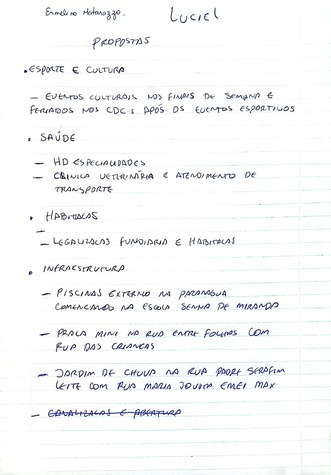 Ermelino Matarazzo.
LUCIEL
PROPOSTAS
• ESPORTE E CULTURA
— EVENTOS CULTURAIS NOS FINAIS DE SEMANA E
FERIADOS NOS CDC.S APÓS OS EVENTOS ESPORTIVOS
• SAÚDE
— HD ESPECIALIDADES
— CLINICA VETERINÁRIA E ATENDIMENTO DE
TRANSPORTE
• HABITACAS
—
— LEGALIZACAS FUNDIARIA E HABITACAS
• INFRAESTRUTURA
— PISCINAS EXTERNO NA PARANAGUA
COMENCANDO NA ESCOLA SENNA DE MIRANDA
— PRACA MINI NA RUA ENTRE FOLHAS COM
RUA DAS CRIANCAS
— JARDIM DE CHUVA NA RUA PADRE SERAFIM
LEITE COM RUA MARIA EMEI MAX
— CANALIZACAS E ABERTURA